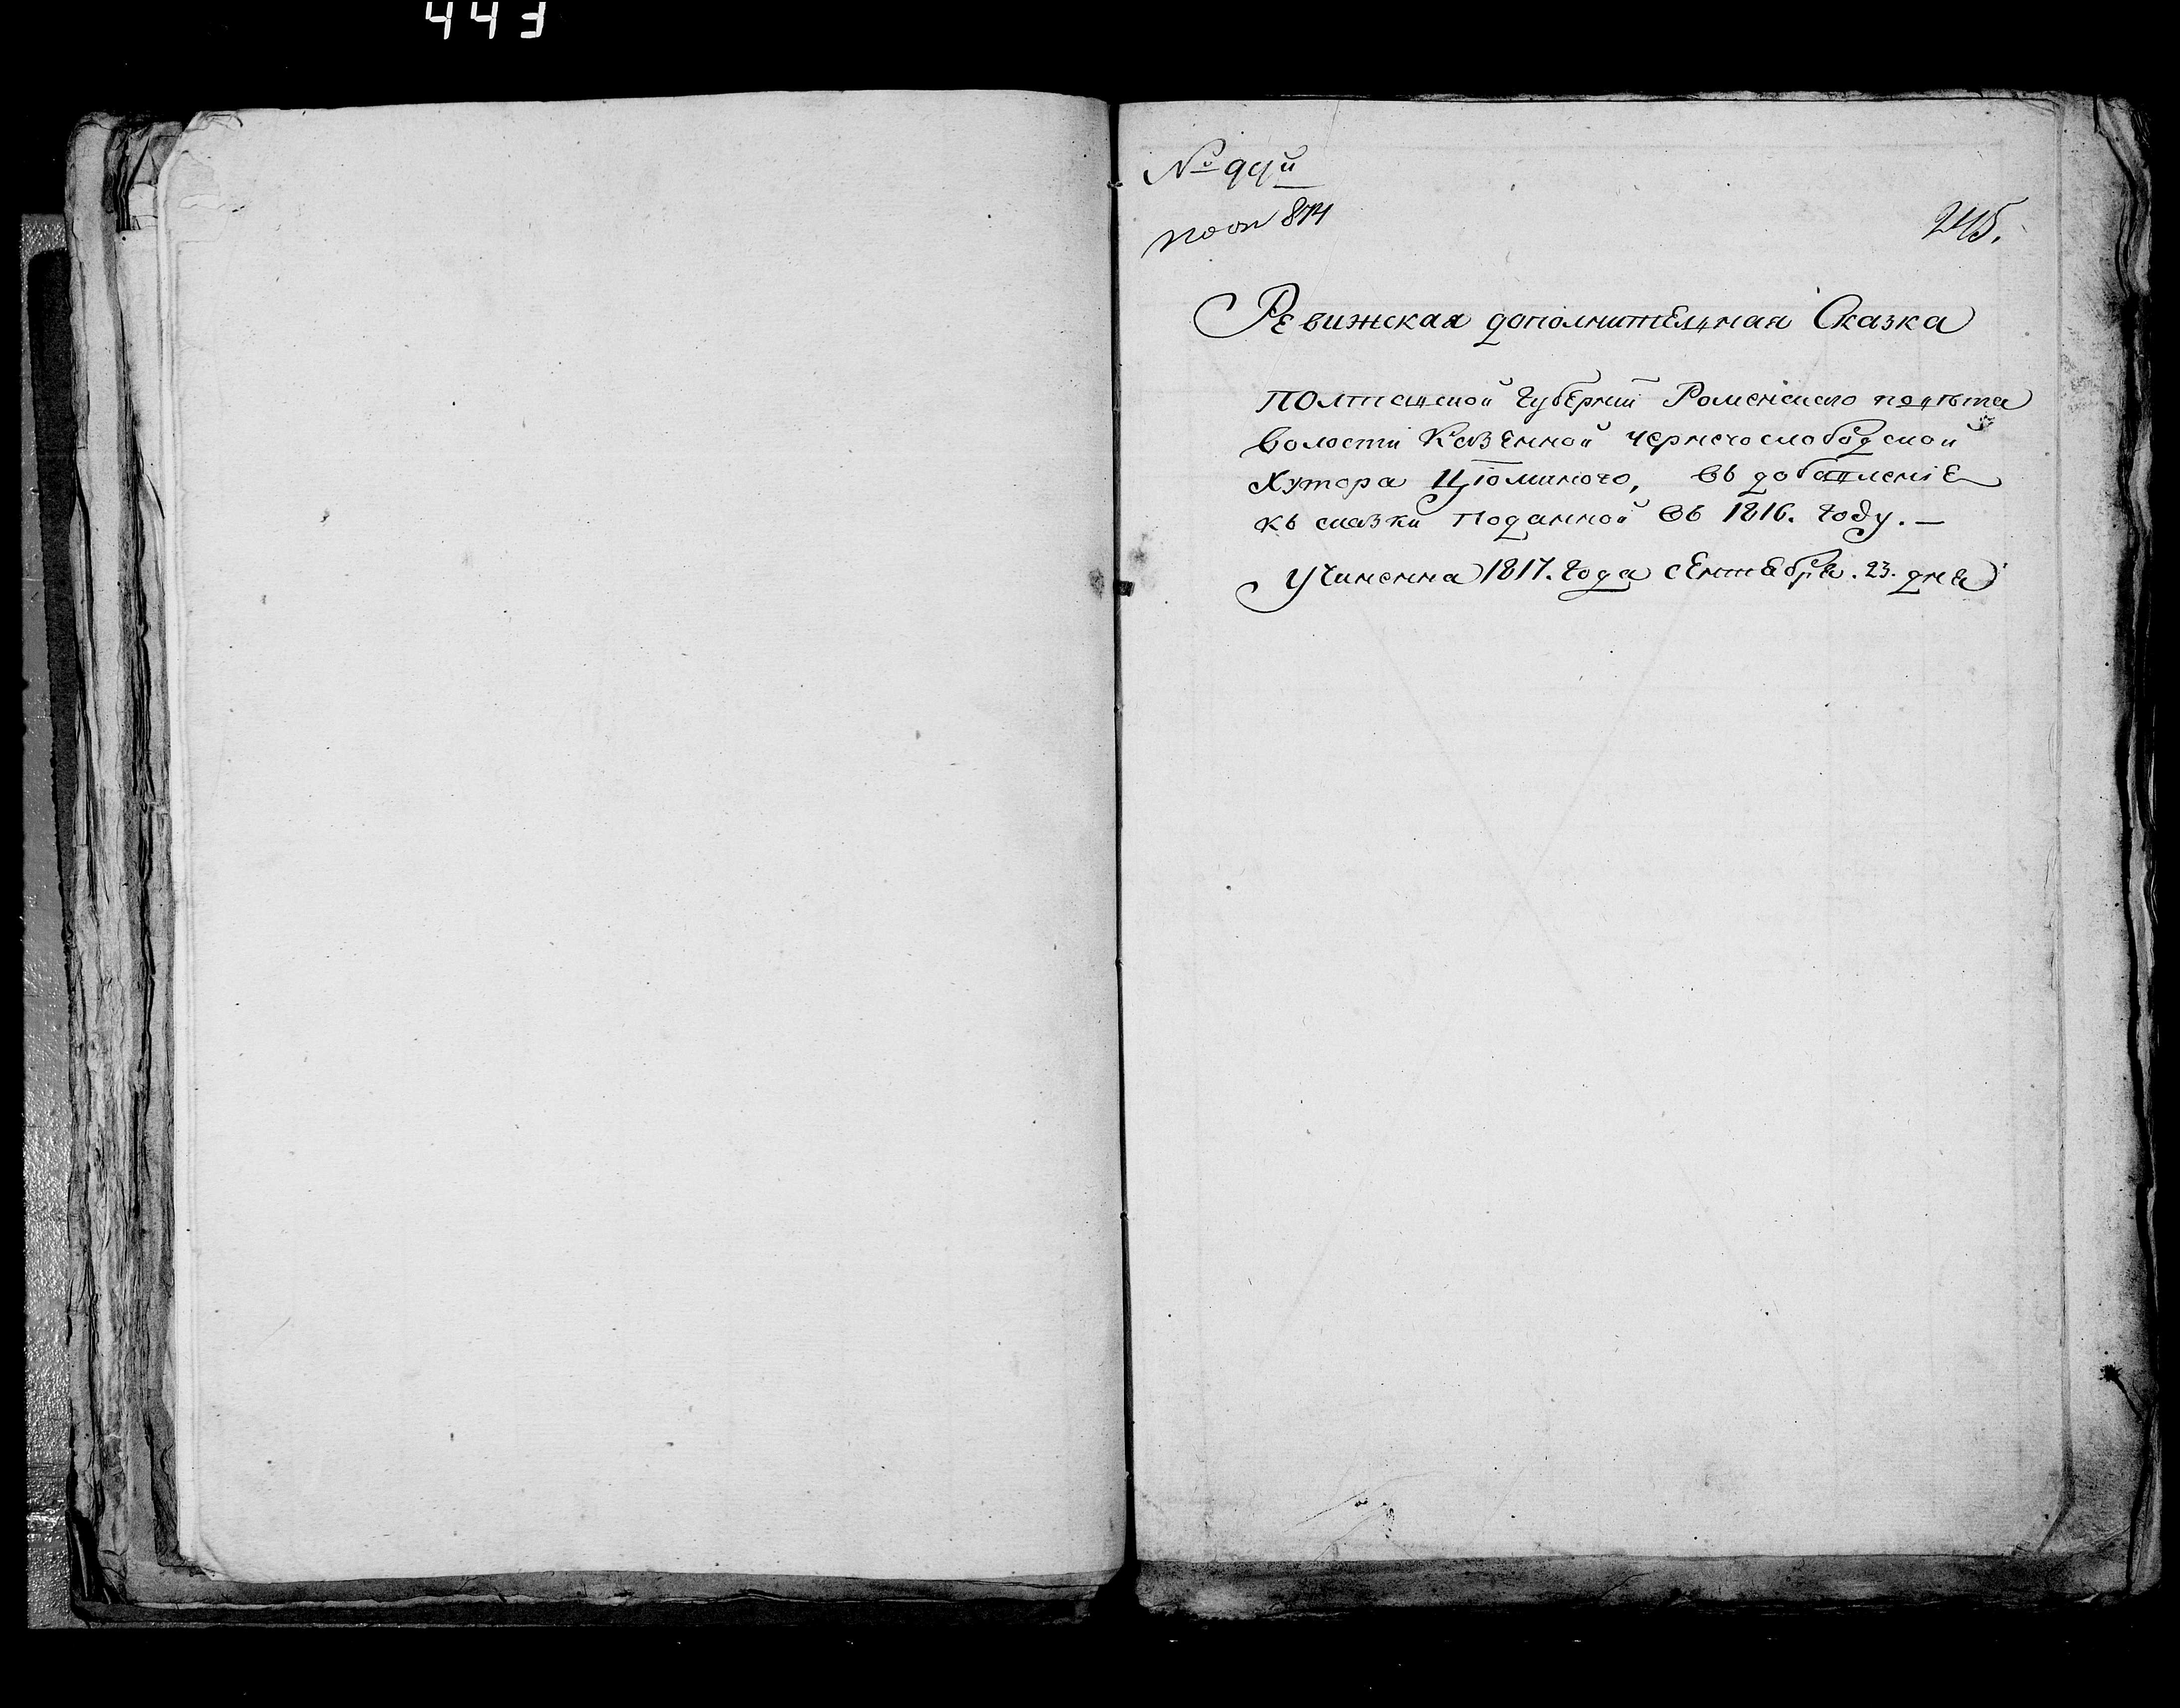 443
№ 99й
по оп 874
245.
Ревижская дополнительная Сказка
Полтавской губернии Роменского повѣта
волости Казенной чернечослободской
Хутора Цюминого, въ добавление
къ сказки поданной въ 1816. году. —
Учиненна 1817. года сентебря. 23. дня